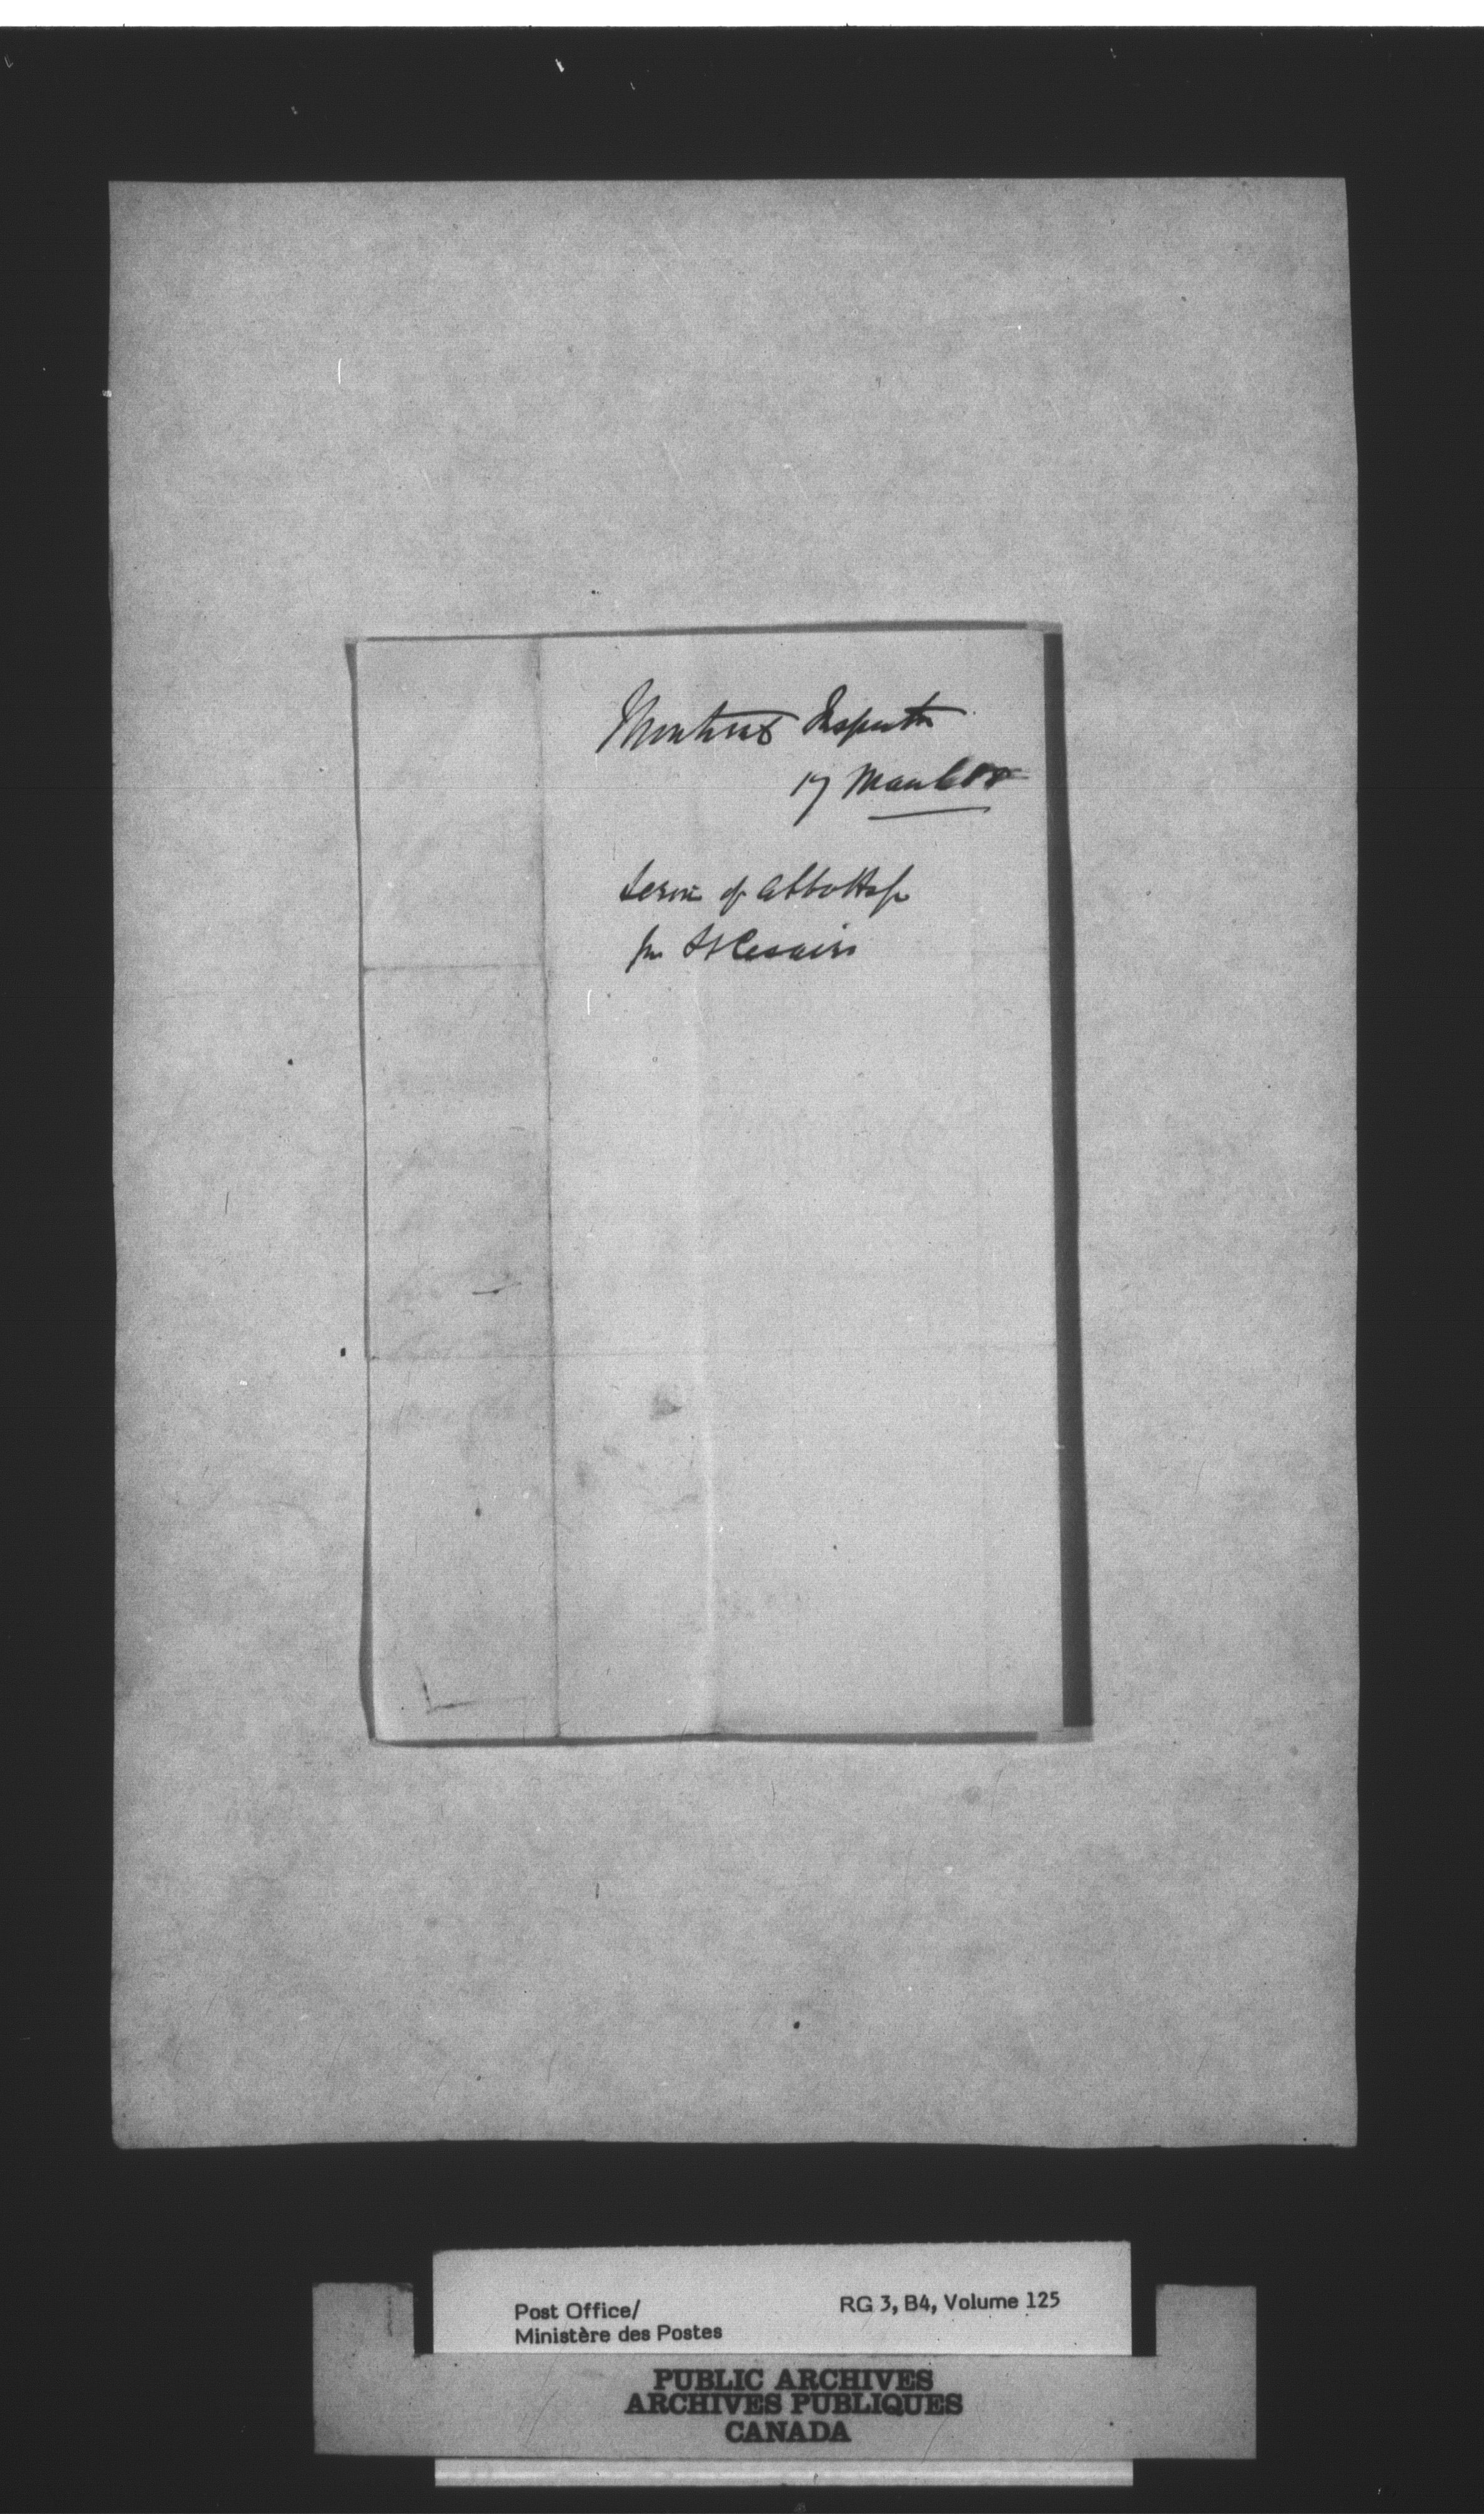 Montreal Inspector
17 March
Service of Abbottsf
for St Cesaire
Post Office/
Ministère des Postes
RG 3, B4, Volume 125
PUBLIC ARCHIVES
ARCHIVES PUBLIQUES
CANADA